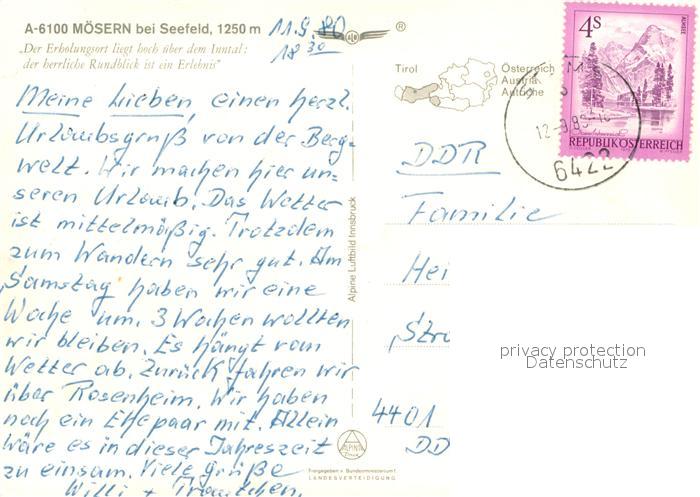 A-6100 MÖSERN bei Seefeld, 1250 m
„Der Erholungsort liegt hoch über dem Inntal:
der herrliche Rundblick ist ein Erlebnis"
11.9.80
18 30
Meine Lieben, einen herzl.
Urlaubsgruß von der Berg-
welt. Wir machen hier un-
seren Urlaub. Das Wetter
ist mittelmäßig. Trotzdem
zum Wandern sehr gut. Am
Samstag haben wir eine
Woche um. 3 Wochen wollten
wir bleiben. Es hängt vom
Wetter ab. Zurück fahren wir
über Rosenheim. Wir haben
noch ein Ehepaar mit. Allein
wäre es in dieser Jahreszeit
zu einsam. Viele Grüße
Willi + Traudchen.
Alpine Luftbild Innsbruck
®
Tirol
Österreich
Austria
Autriche
4S
ALMSEE
REPUBLIK ÖSTERREICH
6422
DDR
Familie
Hei
Str
4401
DD
privacy protection
Datenschutz
ALPINE
Freigegeben v. Bundesministerium f.
LANDESVERTEIDIGUNG